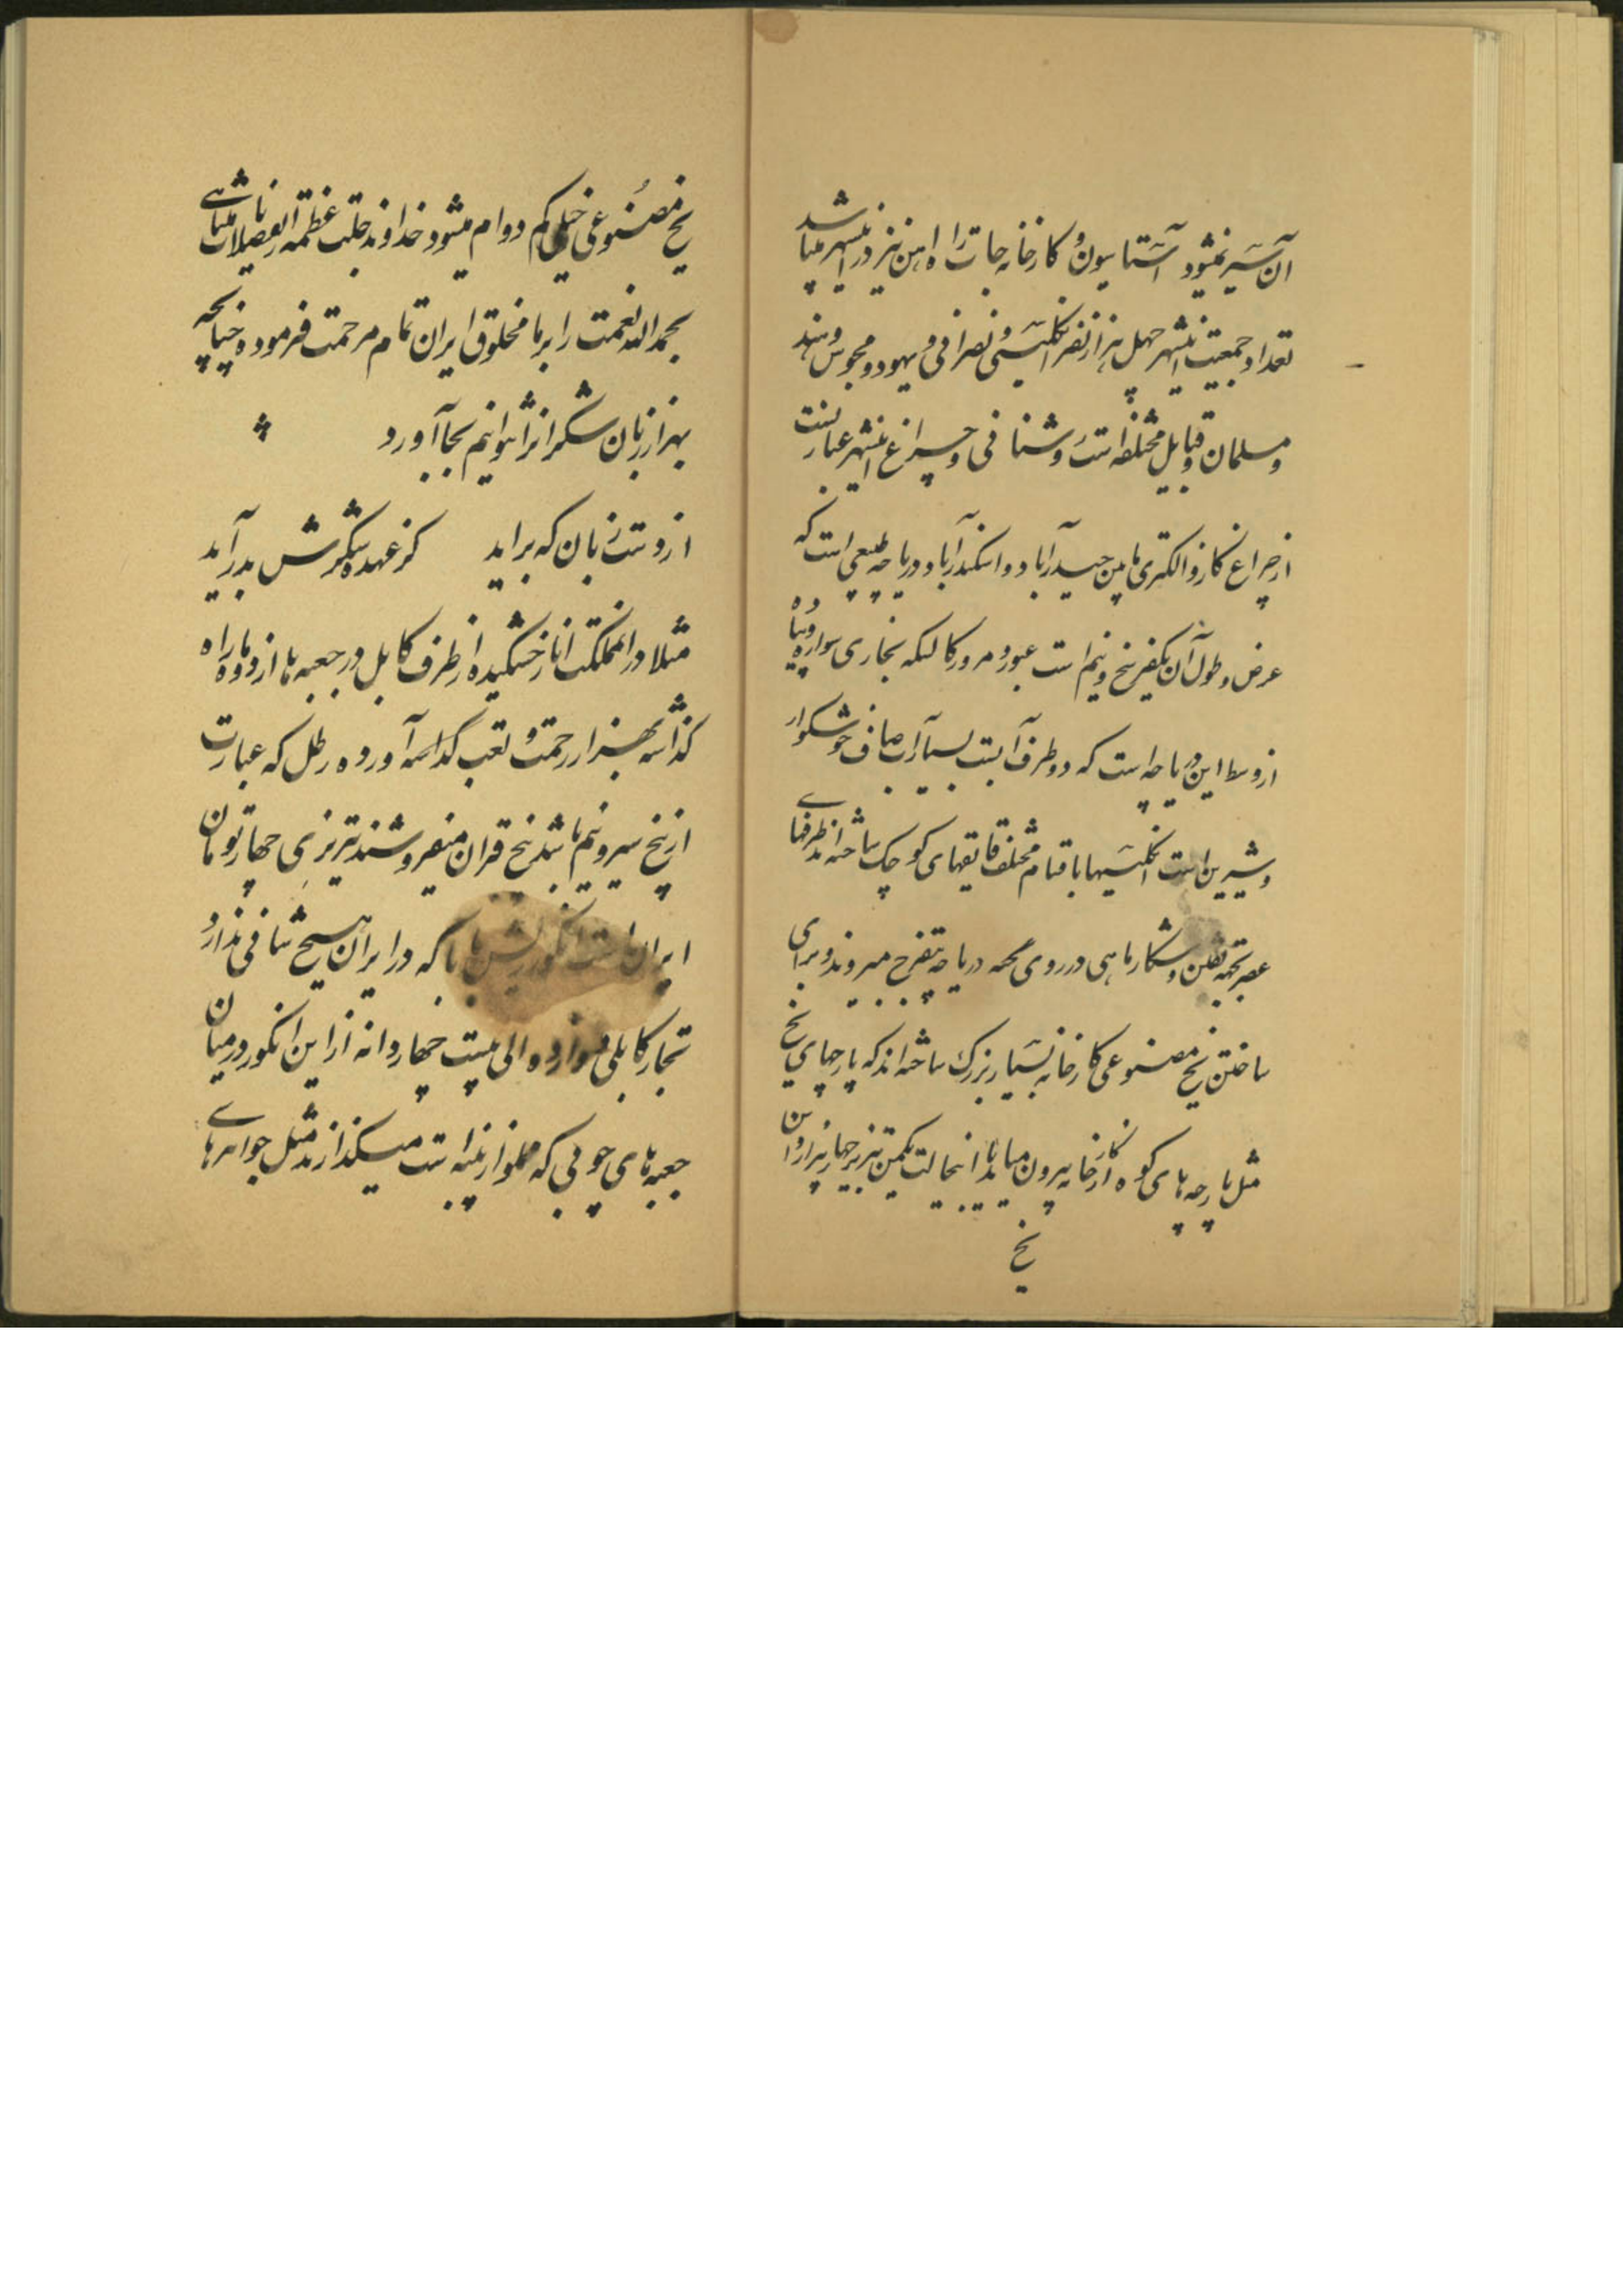 آن سیر نمیشود آستاسیون و کارخانه جات راه اهن نیز در اینشهر میباشد
تعداد جمعیت اینشهر چهل هزار نفر انگلیسی و نصرانی و یهود و مجوس و هند
و مسلمان و قبایل مختلفه است روشنائی و چراغ اینشهر عبارتست
از چراغ کاز و الکتری مابین حیدرآباد و اسکندرآباد دریاچه طبیعی است که
عرض و طول آن یکفرسخ و نیم است عبور و مرور کالسکه بخاری سواره و پیاده
از وسط این دریاچه است که دو طرف آبست بسیار آب صاف خوشکوار
و شیرین است انگلیسها باقسام مختلف قایقهای کوچک ساخته‌اند طرفهای
عصر بجهة تفنن و شکار ماهی در روی دریاچه بتفرج میروند و برای
ساختن یخ مصنوعی کارخانه بسیار بزرک ساخته‌اند که پارچهای یخ
مثل پارچه‌های کوه از کارخانه بیرون میاید با اینحالت یکمن تبریز چهار هزار
یخ
یخ مصنوعی خیلی کم دوام میشود خداوند جلت عظمته
بحمدالله نعمت را بر ما مخلوق ایران تمام مرحمت فرموده چنانچه
بهزار زبان شکر انرا نتوانیم بجا آورد
از دست زبان که براید کز عهده شکرش بدرآید
مثلا در انمملکت انار خشکیده از طرف کابل در جعبه‌ها از دو ماه راه
گذاشته بهزار زحمت و تعب آورده رطل که عبارت
از پنج سیر و نیم باشد پنج قران میفروشند تبریزی چهار تومان
ایران است انگور ریش بابا که در ایران هیچ شانی ندارد
تجار کابلی دوازده الی بیست چهار دانه از این انگور در میان
جعبه‌های چوبی که مملو از پنبه است میگذارند مثل جواهرهای